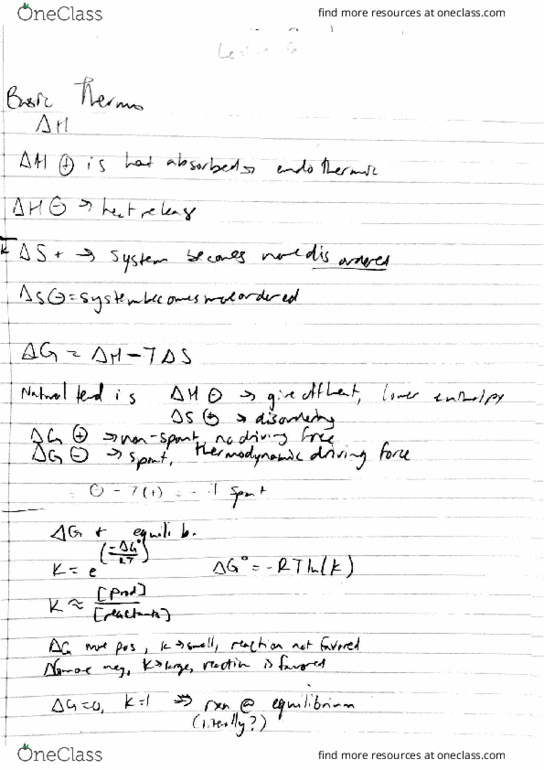 OneClass
find more resources at oneclass.com
Lecture 6
Basic Thermo
ΔH
ΔH ⊕ is heat absorbed → endothermic
ΔH ⊖ → heat release
ΔS + → system becomes more disordered
ΔS ⊖ = system becomes more ordered
ΔG = ΔH - TΔS
Natural tend is ΔH ⊖ → give off heat, lower enthalpy
ΔS ⊕ → disordering
ΔG ⊕ → non-spont, no driving force
ΔG ⊖ → spont, thermodynamic driving force
= ⊖ - T(+) = - spont
ΔG + equilib.
K = e^(-ΔG°/RT) ΔG° = -RT ln(k)
K ≈ [prod]/[reactants]
ΔG more pos, k → small, reaction not favored
more neg, K → large, reaction is favored
ΔG=0, k=1 ⇒ rxn @ equilibrium
(literally?)
OneClass
find more resources at oneclass.com